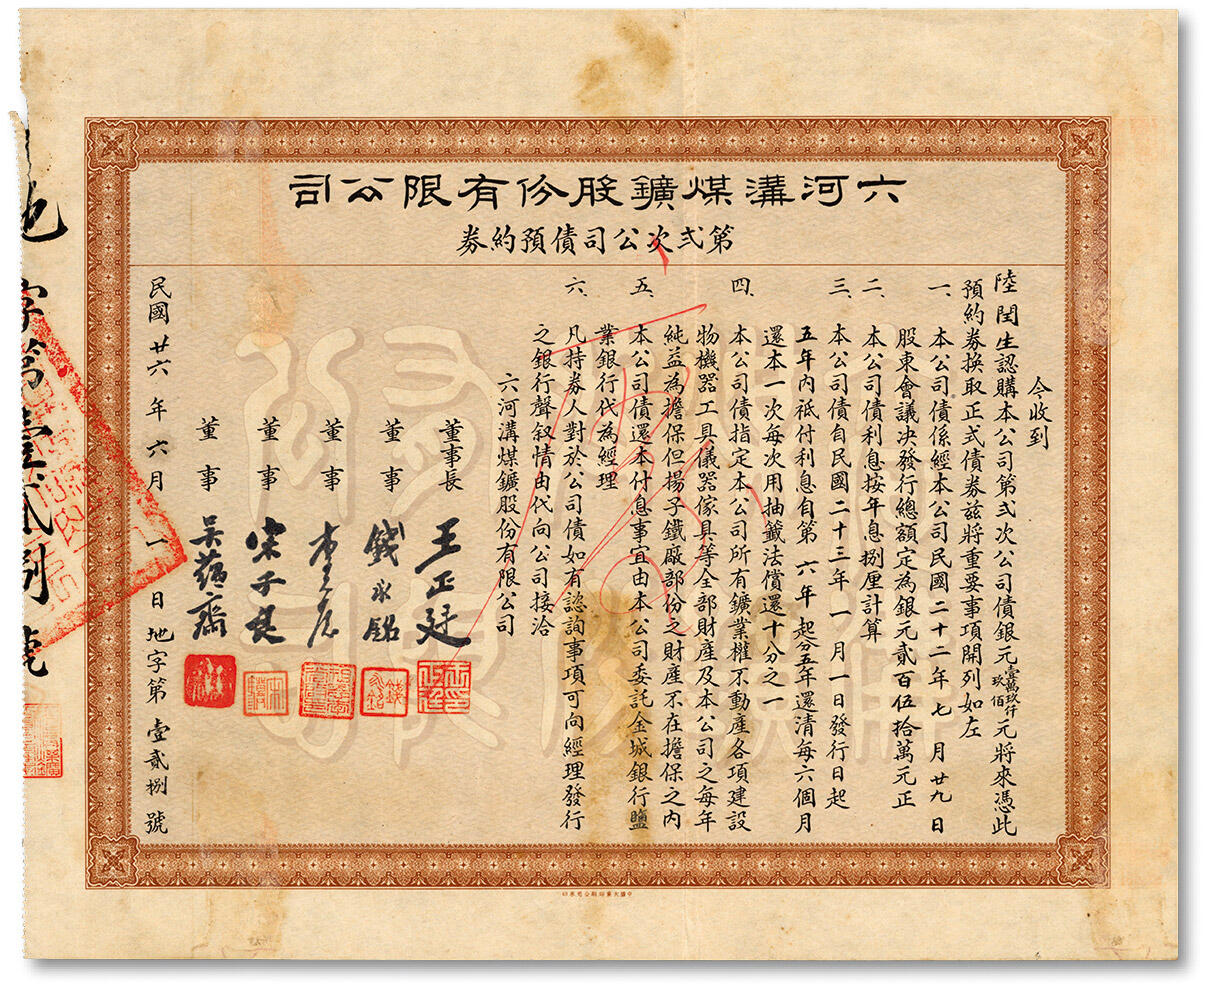 六河溝煤鑛股份有限公司
第弍次公司債預約券
今收到
陸閏生認購本公司第弍次公司債銀元壹萬玖仟玖佰元將來憑此
預約券換取正式債券茲將重要事項開列如左
一、本公司債係經本公司民國二十二年七月廿九日
股東會議決發行總額定為銀元貳百伍拾萬元正
二、本公司債利息按年息捌厘計算
三、本公司債自民國二十三年一月一日發行日起
五年內祇付利息自第六年起分五年還清每六個月
還本一次每次用抽籤法償還十分之一
四、本公司債指定本公司所有鑛業權不動產各項建設
物機器工具儀器傢具等全部財產及本公司之每年
純益為擔保但揚子鐵廠部份之財產不在擔保之內
五、本公司債還本付息事宜由本公司委託金城銀行鹽
業銀行代為經理
六、凡持券人對於公司債如有認詢事項可向經理發行
之銀行聲叙情由代向公司接洽
六河溝煤鑛股份有限公司
董事長 王正廷
董事 錢永銘
董事 李
董事 宋子良
董事 吳蘊齋
民國廿六年六月一日地字第壹貳捌號
地字第壹貳捌號